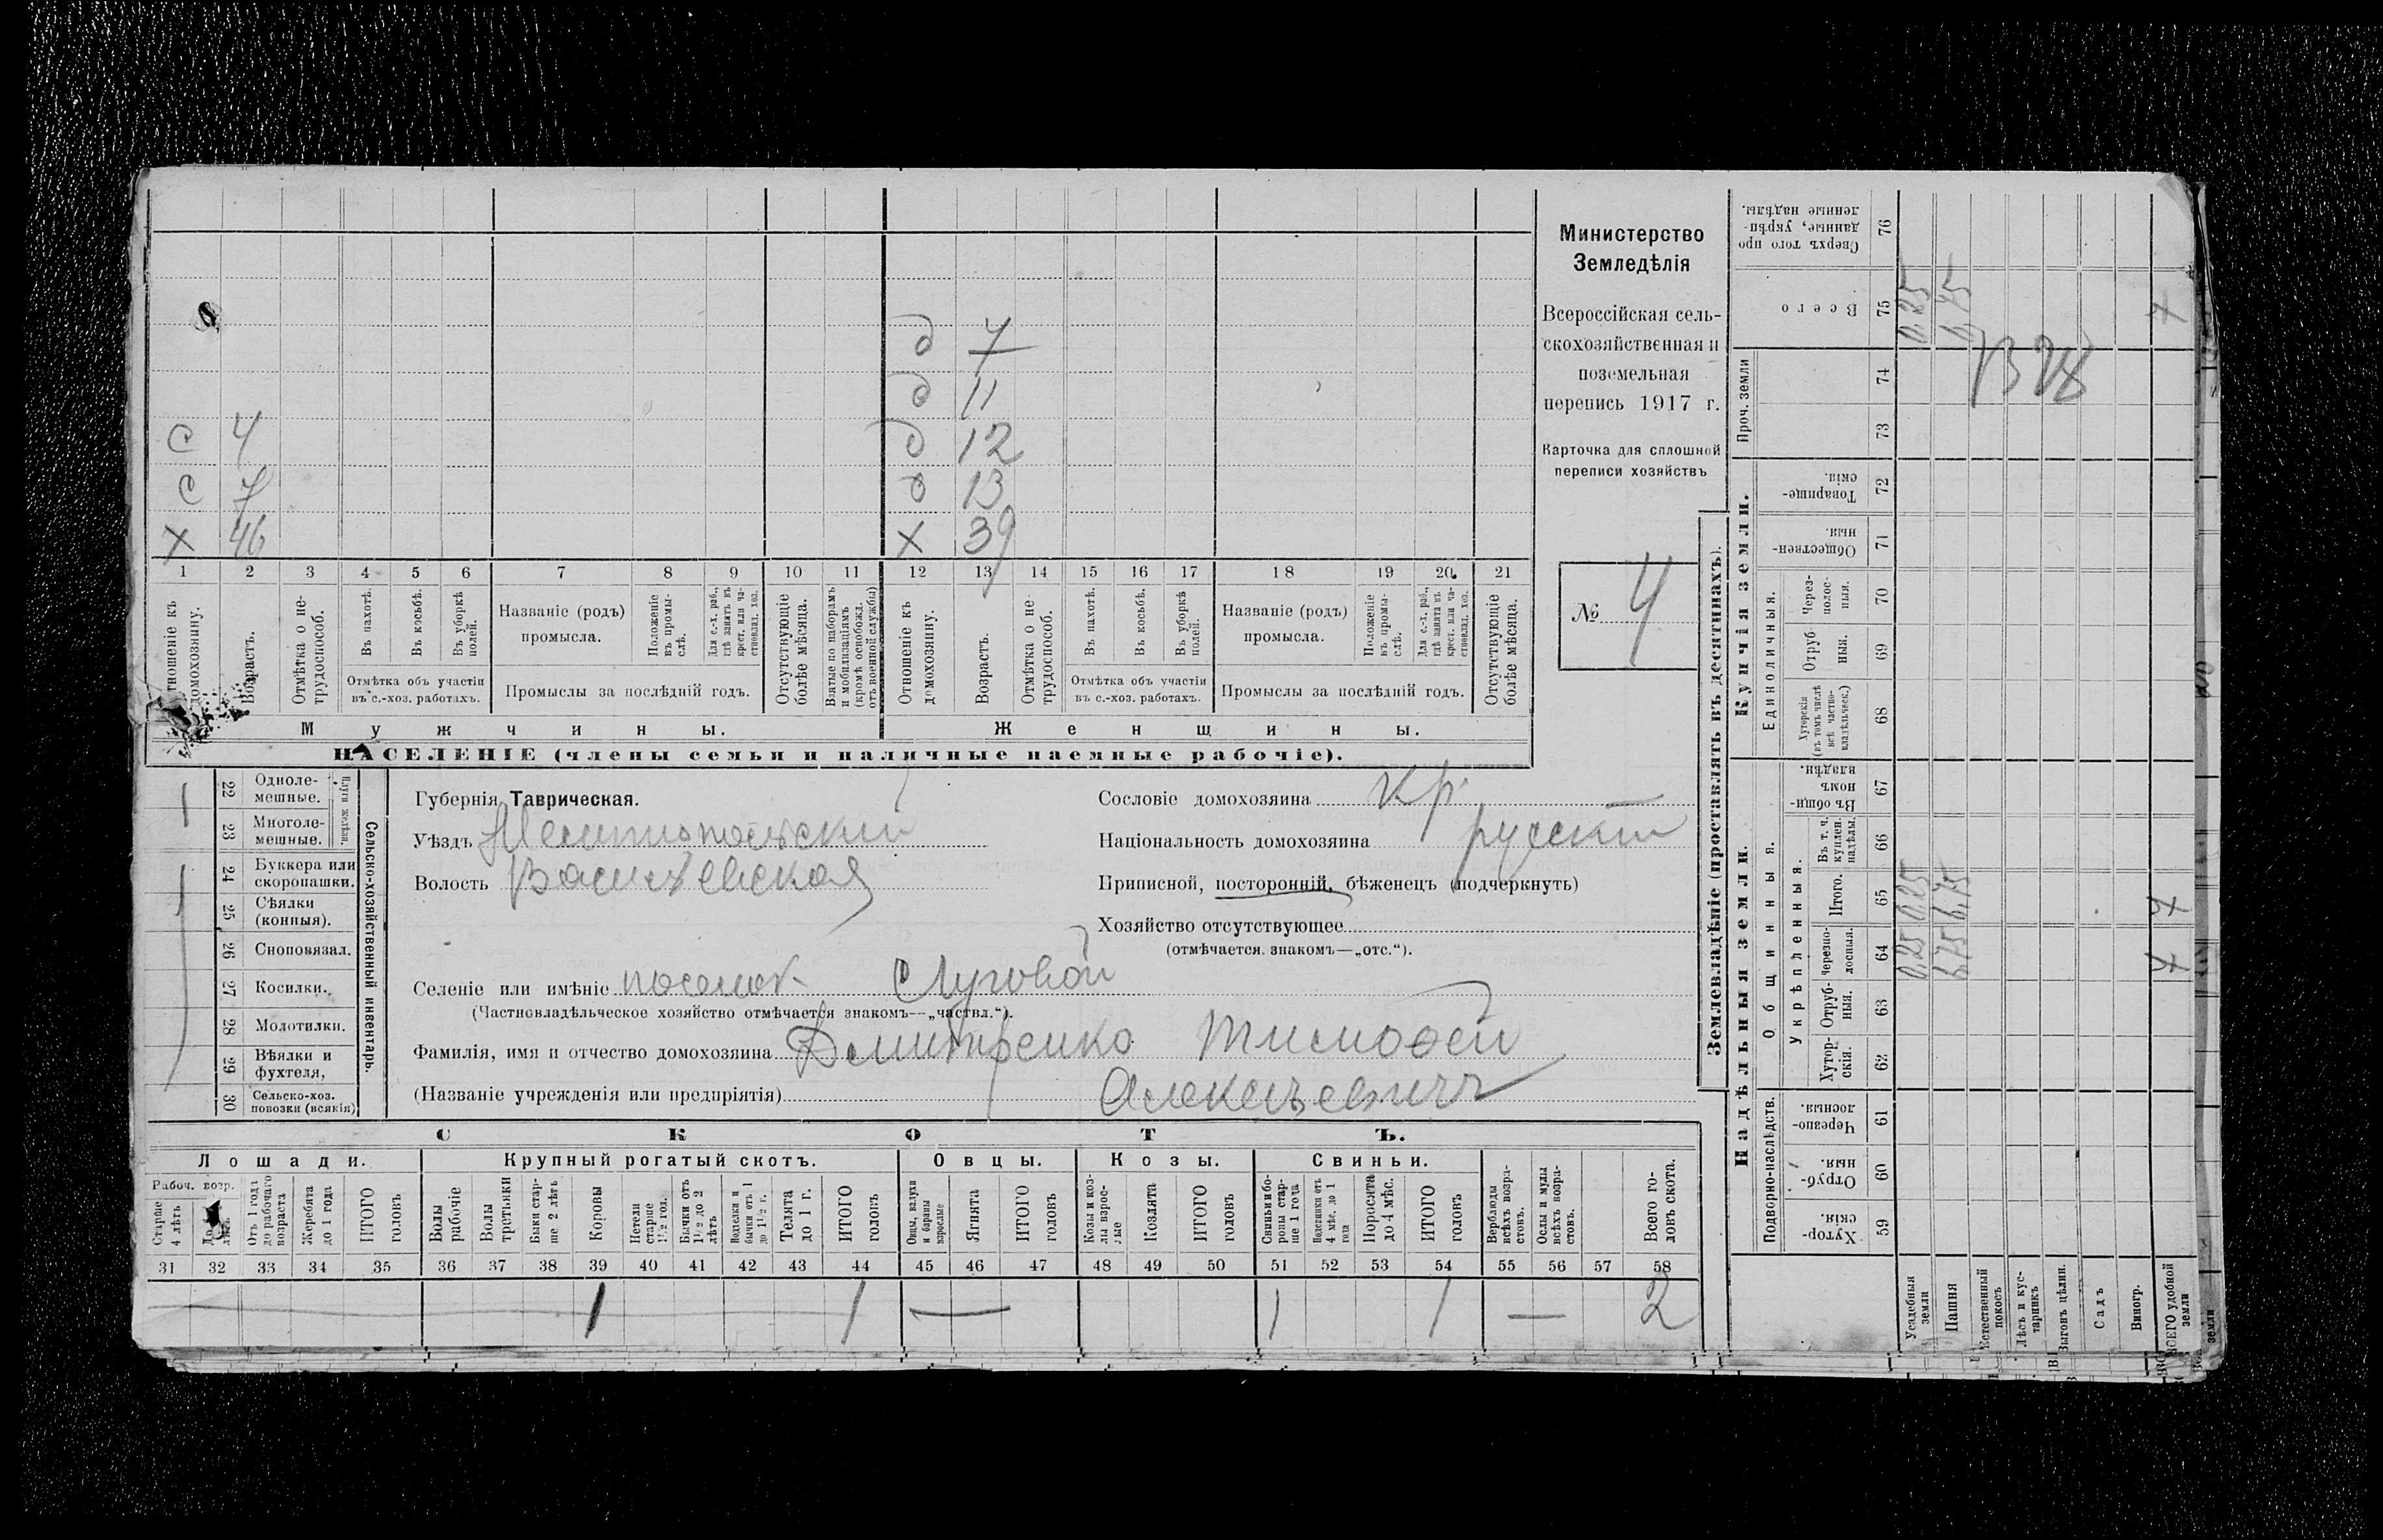 д 7
д 11
с 4 д 12
с 7 д 13
х 46 х 39
1 2 3 4 5 6 7 8 9 10 11 12 13 14 15 16 17 18 19 20 21
Отношеніе къ домохозяину.
Возрастъ.
Отмѣтка о не-трудоспособ.
Въ пахотѣ.
Въ косьбѣ.
Въ уборкѣ полей.
Отмѣтка объ участіи
въ с.-хоз. работахъ.
Названіе (родъ)
промысла.
Положеніе въ промы-слѣ.
Для с.-х. раб., гдѣ занятъ въ крест. или ча-стновлад. хоз.
Промыслы за послѣдній годъ.
Отсутствующіе болѣе мѣсяца.
Взятые по наборамъ и мобилизаціямъ (кромѣ освобожд. отъ военной службы)
Отношеніе къ домохозяину.
Возрастъ.
Отмѣтка о не-трудоспособ.
Въ пахотѣ.
Въ косьбѣ.
Въ уборкѣ полей.
Отмѣтка объ участіи
въ с.-хоз. работахъ.
Названіе (родъ)
промысла.
Положеніе въ промы-слѣ.
Для с.-х. раб., гдѣ занята въ крест. или ча-стновлад. хоз.
Промыслы за послѣдній годъ.
Отсутствующіе болѣе мѣсяца.
Мужчины. Женщины.
НАСЕЛЕНІЕ (члены семьи и наличные наемные рабочіе).
Министерство
Земледѣлія
Всероссійская сель-
скохозяйственная и
поземельная
перепись 1917 г.
Карточка для сплошной
переписи хозяйствъ
№ 4
22 Одноле-
мешные.
23 Многоле-
мешные.
Плуги желѣзн.
24 Буккера или
скоропашки.
25 Сѣялки
(конныя).
26 Сноповязал.
27 Косилки.
28 Молотилки.
29 Вѣялки и
фухтеля.
30 Сельско-хоз.
повозки (всякія)
Сельско-хозяйственный инвентарь.
Губернія Таврическая.
Уѣздъ Мелитопольскій
Волость Васильевская
Сословіе домохозяина кр.
Національность домохозяина русскій
Приписной, посторонній, бѣженецъ (подчеркнуть)
Хозяйство отсутствующее
(отмѣчается знакомъ—„отс.“).
Селеніе или имѣніе поселок Луговой
(Частновладѣльческое хозяйство отмѣчается знакомъ—„частвл.“).
Фамилія, имя и отчество домохозяина Дмитренко Тимофей
(Названіе учрежденія или предпріятія) Алексѣевичъ
СКОТЪ.
Лошади. Крупный рогатый скотъ. Овцы. Козы. Свиньи.
Рабоч. возр.
Старше 4 лѣтъ
Отъ 1 года до рабочаго возраста
Жеребята до 1 года
ИТОГО головъ
Волы рабочіе
Волы третьяки
Быки стар-ше 2 лѣтъ
Коровы
Нетели старше 1½ год.
Бычки отъ 1½ до 2 лѣтъ
Подтелки и бычки отъ 1 до 1½ г.
Телята до 1 г.
ИТОГО головъ
Овцы, валухи и бараны взрослые
Ягнята
ИТОГО головъ
Козы и коз-лы взрос-лые
Козлята
ИТОГО головъ
Свиньи и бо-ровы стар-ше 1 года
Подсвинки отъ 4 мѣс. до 1 года
Поросята до 4 мѣс.
ИТОГО головъ
Верблюды всѣхъ возра-стовъ.
Ослы и мулы всѣхъ возра-стовъ.
Всего го-ловъ скота.
31 32 33 34 35 36 37 38 39 40 41 42 43 44 45 46 47 48 49 50 51 52 53 54 55 56 57 58
1 1 — 1 1 — 2
Землевладѣніе (проставлять въ десятинахъ).
Надѣльныя земли. Купчія земли.
Проч. земли
Подворно-наслѣдств.
Общинныя.
Укрѣпленныя.
Единоличныя.
59 Хутор-скія.
60 Отруб-ныя.
61 Черезпо-лосныя.
62 Хутор-скія.
63 Отруб-ныя.
64 Черезпо-лосныя. 0,25 6,75 7
65 Итого. 0,25 6,75 7
66 Въ т. ч. куплен. надѣлы.
67 Въ общин-номъ владѣн.
68 Хуторскія (въ томъ числѣ всѣ частно-владѣльческ.)
69 Отруб-ныя.
70 Через-полос-ныя.
71 Обществен-ныя.
72 Товарище-скія.
73
74
75 Всего 0,25 6,75 7
76 Сверхъ того про-данные, укрѣп-ленные надѣлы.
Усадебныя земли
Пашня
Естественный покосъ
Лѣсъ и кус-тарникъ
Выгонъ цѣлин.
Садъ
Виногр.
ВСЕГО удобной земли